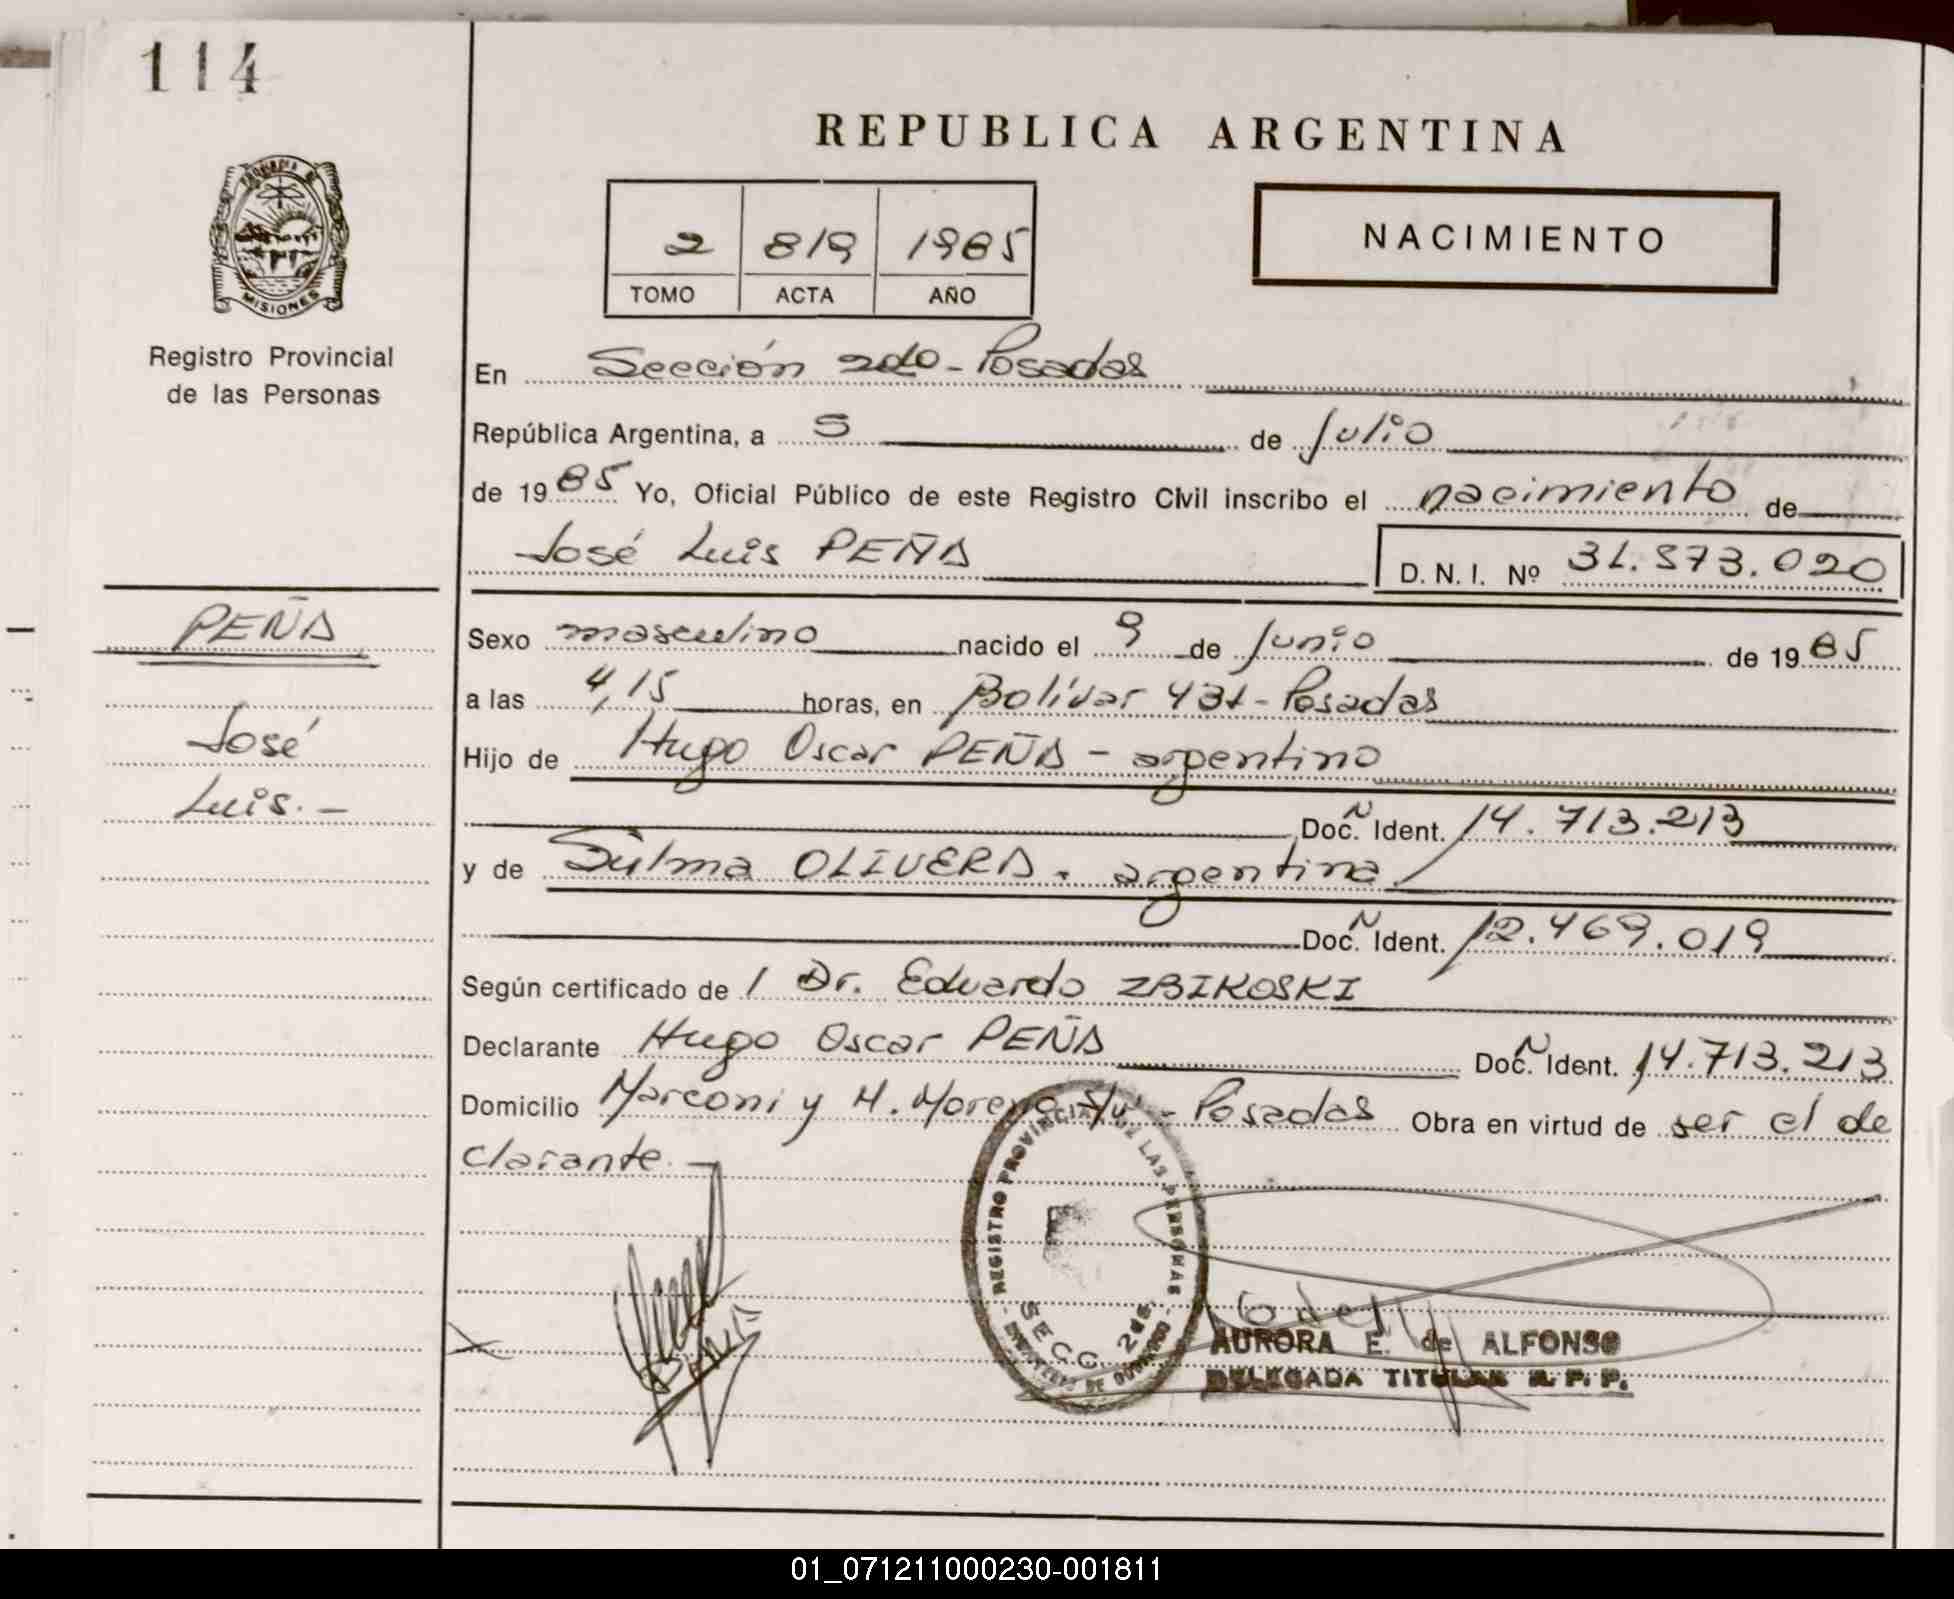 114
REPUBLICA ARGENTINA
PROVINCIA DE
MISIONES
Registro Provincial
de las Personas
2 819 1985
TOMO ACTA AÑO
NACIMIENTO
En Sección 2do - Posadas
República Argentina, a 5 de Julio
de 1985 Yo, Oficial Público de este Registro Civil inscribo el nacimiento de
José Luis PEÑA
D. N. I. Nº 31.573.020
PEÑA
José
Luis. -
Sexo masculino nacido el 9 de Junio de 1985
a las 4,15 horas, en Bolívar 431 - Posadas
Hijo de Hugo Oscar PEÑA - argentino
Doc. N Ident. 14.713.213
y de Sulma OLIVERA. argentina
Doc. N Ident. 12.469.019
Según certificado de 1 Dr. Eduardo ZBIKOSKI
Declarante Hugo Oscar PEÑA Doc. N Ident. 14.713.213
Domicilio Marconi y M. Moreno S/nº - Posadas Obra en virtud de ser el de
clarante. -
REGISTRO PROVINCIAL DE LAS PERSONAS
SECC. 2da.
AURORA E. de ALFONSO
DELEGADA TITULAR R. P. P.
01_071211000230-001811